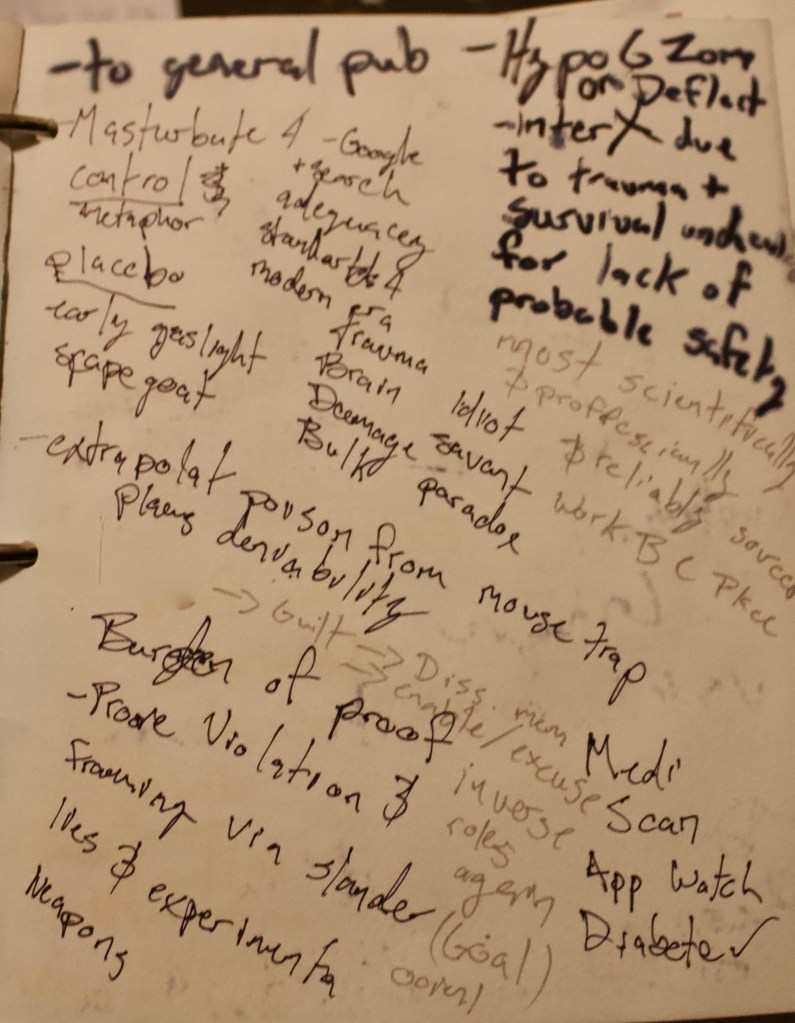 -to general pub
-Masturbate 4
control &
metaphor
placebo
early gaslight
scapegoat
-Google
+ search
adequacey
standards 4
modern era
trauma
Brain
Daemage
Bulk
Idiot
savant
paradox
-Hypo G Zom
or Deflect
-inter X due
to trauma +
survival
for lack of
probable safety
most scientifically
& proffescianlly
& reliably sourced
work. B C
-extrapolat poison from mouse trap
Plaus deniability
-> Guilt -> Diss. mem
-> enable/excuse
inverse
roles
(Goal)
Burden of proof
-Prove Violation &
framing via slander
lies & experimenta
weapons
Medi
Scan
App Watch
Diabete ✓